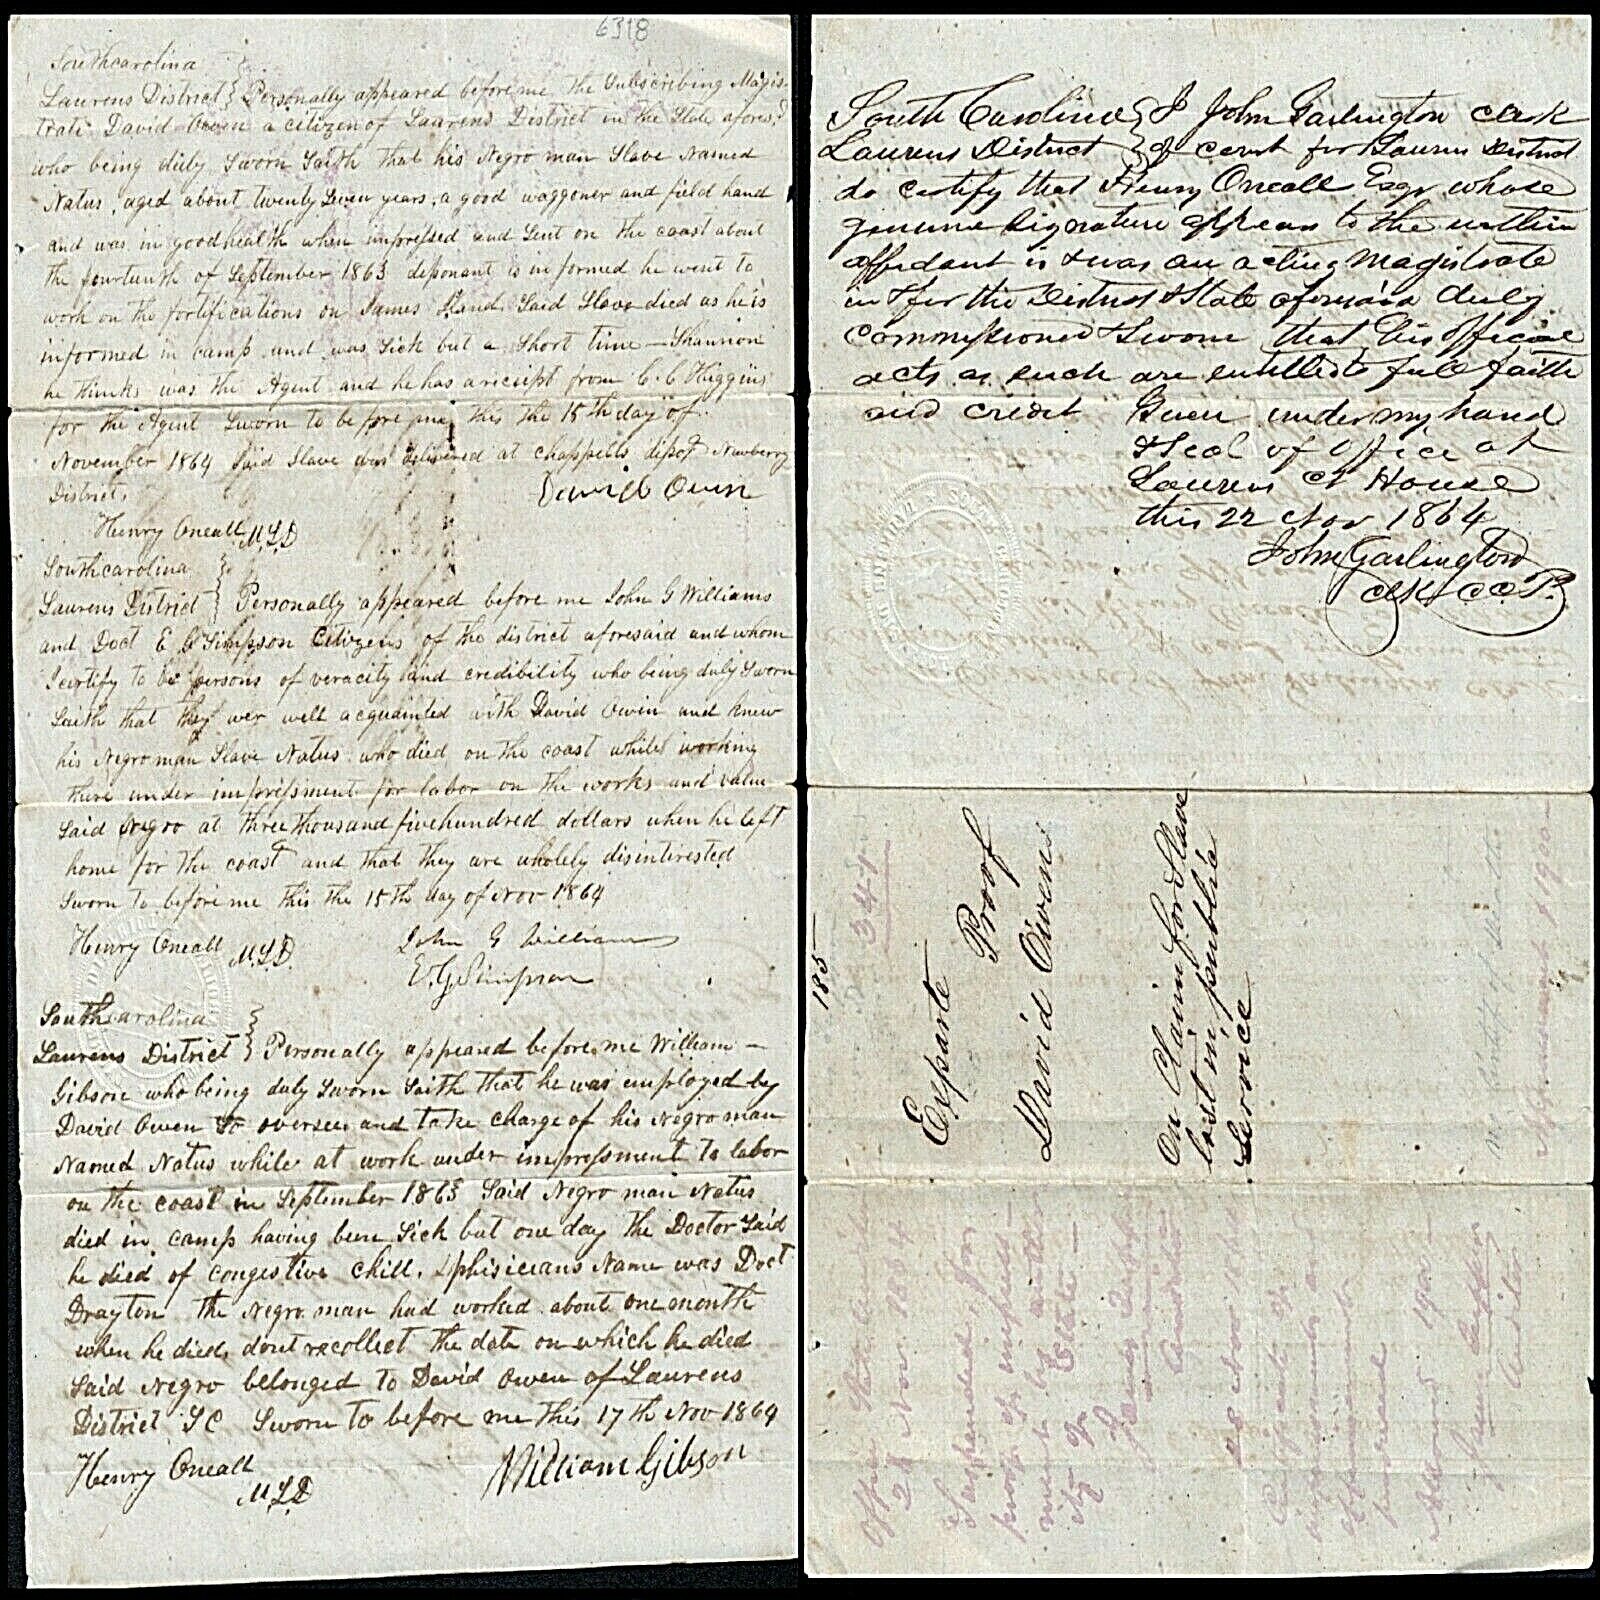 6318
Southcarolina
Laurens District } Personally appeared before me the Subscribing Magis-
trate David Owen a citizen of Laurens District in the State afores,d
who being duly Sworn Saith that his Negro man Slave Named
Natus, aged about twenty Seven years, a good waggoner and field hand
and was in good health when impressed and Sent on the coast about
the fourteenth of September 1863 deponant is informed he went to
work on the fortifications on James Iland. Said Slave died as he is
informed in camp and was Sick but a Short time – Shannon
he thinks was the Agent and he has a reciept from C. C Higgins
for the Agent Sworn to before me this the 15th day of
November 1864 Said Slave was delivered at chappells depot Newberry
District.
David Owen
Henry Oneall M.L.D
Southcarolina
Laurens District } Personally appeared before me John G Williams
and Doct E G Simpson Citizens of the district aforesaid and whom
I certify to be persons of veracity and credibility who being duly Sworn
Saith that they wer well acquainted with David Owen and knew
his Negro man Slave Natus who died on the coast while working
there under impressment for labor on the works and value
Said Negro at three thousand five hundred dollars when he left
home for the coast and that they are wholely disinterested
Sworn to before me this the 15th day of Nov 1864
Henry Oneall M.L.D. John G Williams
E. G. Simpson
Southcarolina
Laurens District } Personally appeared before me William –
Gibson who being duly Sworn Saith that he was employed by
David Owen to oversee and take charge of his Negro man
Named Natus while at work under impressment to labor
on the coast in September 1863 Said Negro man Natus
died in camp having been Sick but one day the Doctor Said
he died of congestive chill, phisicians Name was Doct
Drayton the Negro man had worked about one month
when he died, dont recollect the date on which he died
Said Negro belonged to David Owen of Laurens
District SC Sworn to before me this 17th Nov 1864
Henry Oneall
M.L.D
William Gibson
South Carolina } I John Garlington Clerk
Laurens District } of court for Laurens District
do certify that Henry Oneall Esqr whose
genuine Signature appears to the within
affidavit is & was an acting Magistrate
in & for the District & State aforesaid duly
commissioned & Sworn that his official
acts as such are entitled to full faith
and credit Given under my hand
& Seal of office at
Laurens Ct House
this 22 Nov 1864
John Garlington
Clk CCP.
185
3441
Exparte Proof
David Owens
On Claim for Slave
lost in public
Service
Office
21 Nov 1864
Suspended for
proof of impress-
ment by authority
of State –
James Tupper
28 Nov
Certificate of
procured
1900
James Tupper
Auditor